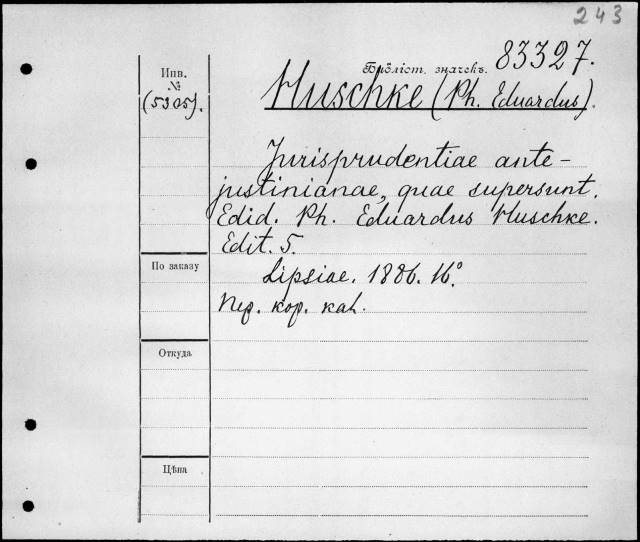 243
Инв. №
(5305).
Библіот. значекъ. 83327.
Huschke (Ph. Eduardus).
Jurisprudentiae ante-
justinianae, quae supersunt.
Edid. Ph. Eduardus Huschke.
Edit. 5.
По заказу
Lipsiae. 1886. 16°.
Пер. кор. каl.
Откуда
Цѣна